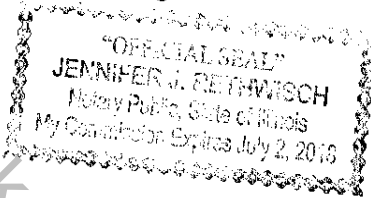 "OFFICIAL SEAL"
JENNIFER J. RETHWISCH
Notary Public, State of Illinois
My Commission Expires July 2, 2016